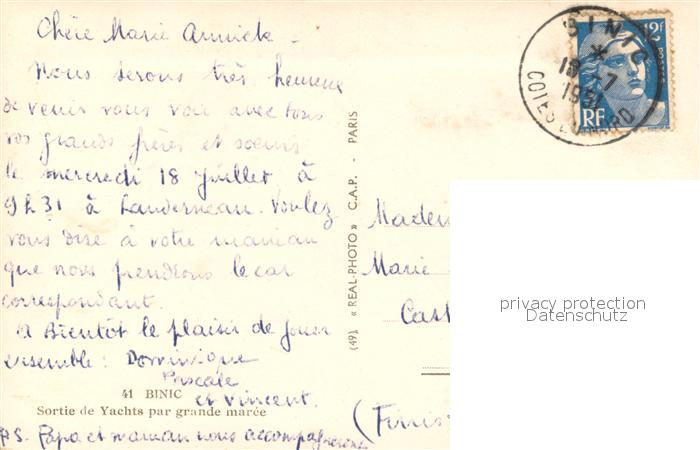 Chère Marie Annick -
Nous serons très heureux
de venir vous voir avec tous
vos grands frères et soeurs
le mercredi 18 Juillet à
9h31 à Landerneau. Voulez
vous dire à votre maman
que nous prendrons le car
correspondant.
A Bientôt le plaisir de jouer
ensemble : Dominique
Pascale
et Vincent.
41 BINIC
Sortie de Yachts par grande marée
P.S. Papa et maman nous accompagnerons
(49) « REAL-PHOTO » C.A.P. - PARIS
BINIC
18 -7
1951
COTES DU NORD
12F
POSTES
RF
Madem
Marie
Cast
(Finis
privacy protection
Datenschutz